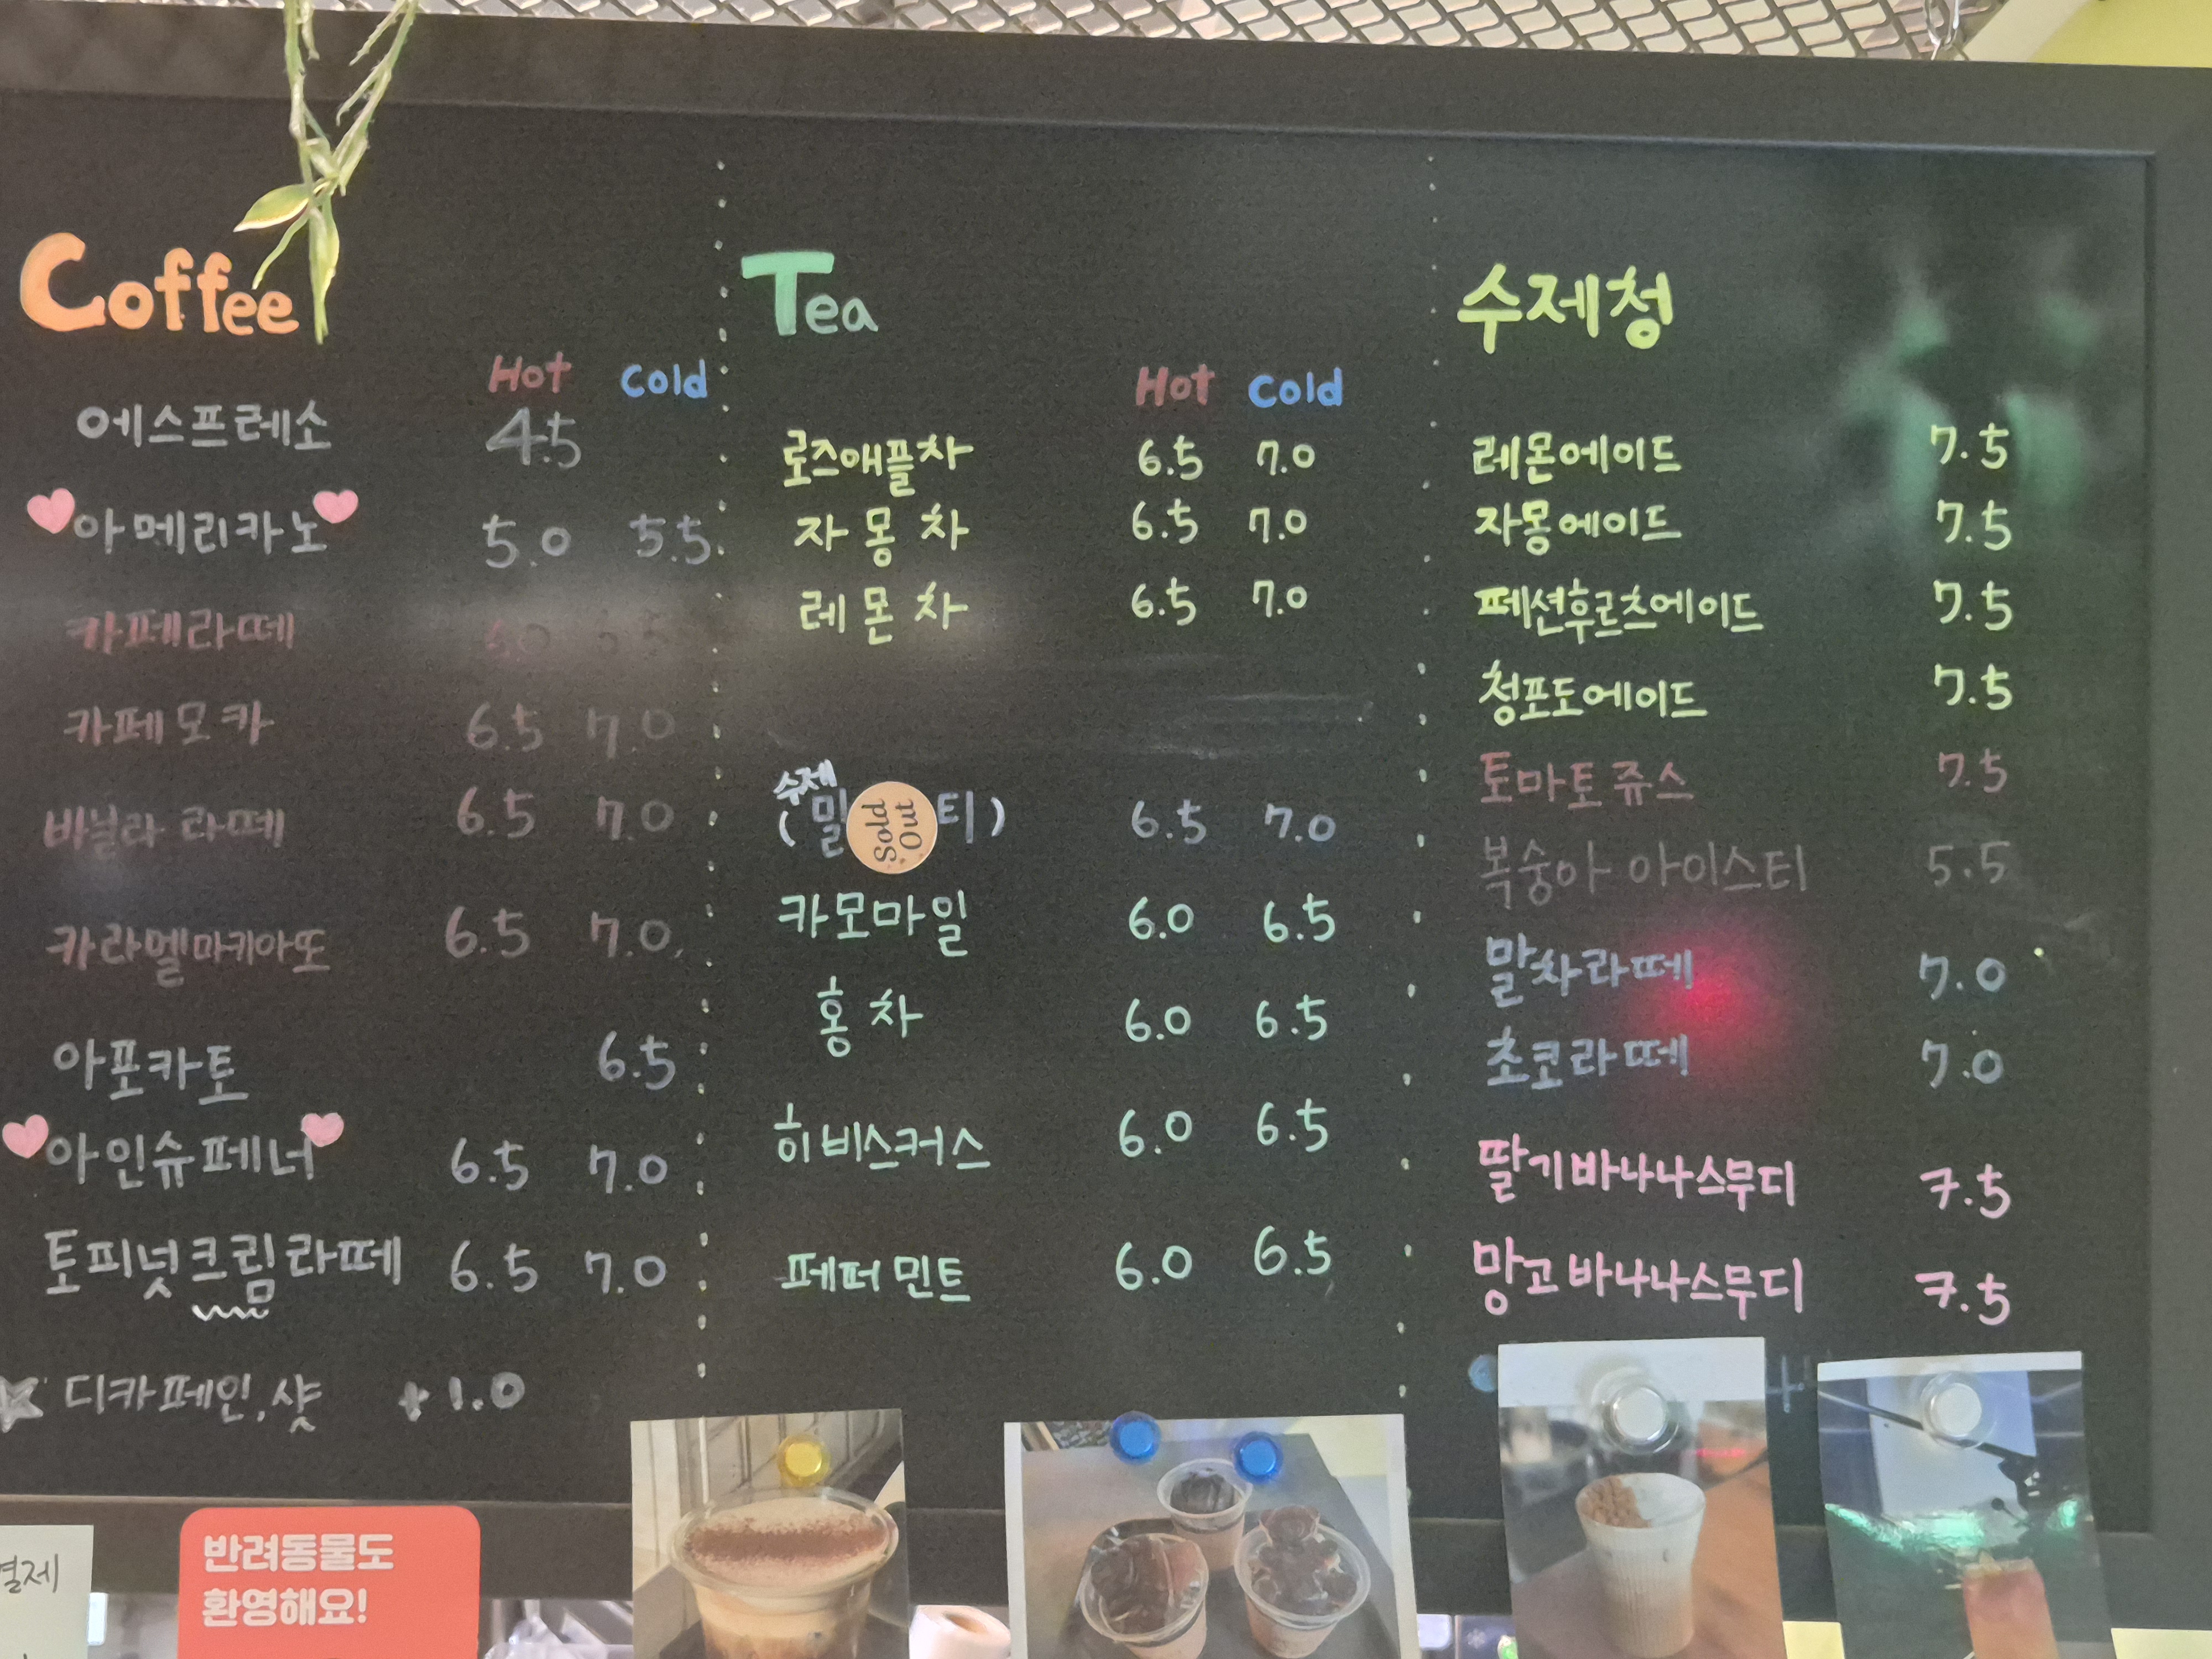 Coffee
Hot Cold
에스프레소 4.5
아메리카노 5.0 5.5
카페라떼 6.0 6.5
카페모카 6.5 7.0
바닐라 라떼 6.5 7.0
카라멜마키아또 6.5 7.0
아포카토 6.5
아인슈페너 6.5 7.0
토피넛크림라떼 6.5 7.0
디카페인, 샷 +1.0
Tea
Hot Cold
로즈애플차 6.5 7.0
자몽차 6.5 7.0
레몬차 6.5 7.0
수제
(밀 티) 6.5 7.0
Sold Out
카모마일 6.0 6.5
홍차 6.0 6.5
히비스커스 6.0 6.5
페퍼민트 6.0 6.5
수제청
레몬에이드 7.5
자몽에이드 7.5
페션후르츠에이드 7.5
청포도에이드 7.5
토마토쥬스 7.5
복숭아 아이스티 5.5
말차라떼 7.0
초코라떼 7.0
딸기바나나스무디 7.5
망고바나나스무디 7.5
결제
반려동물도
환영해요!